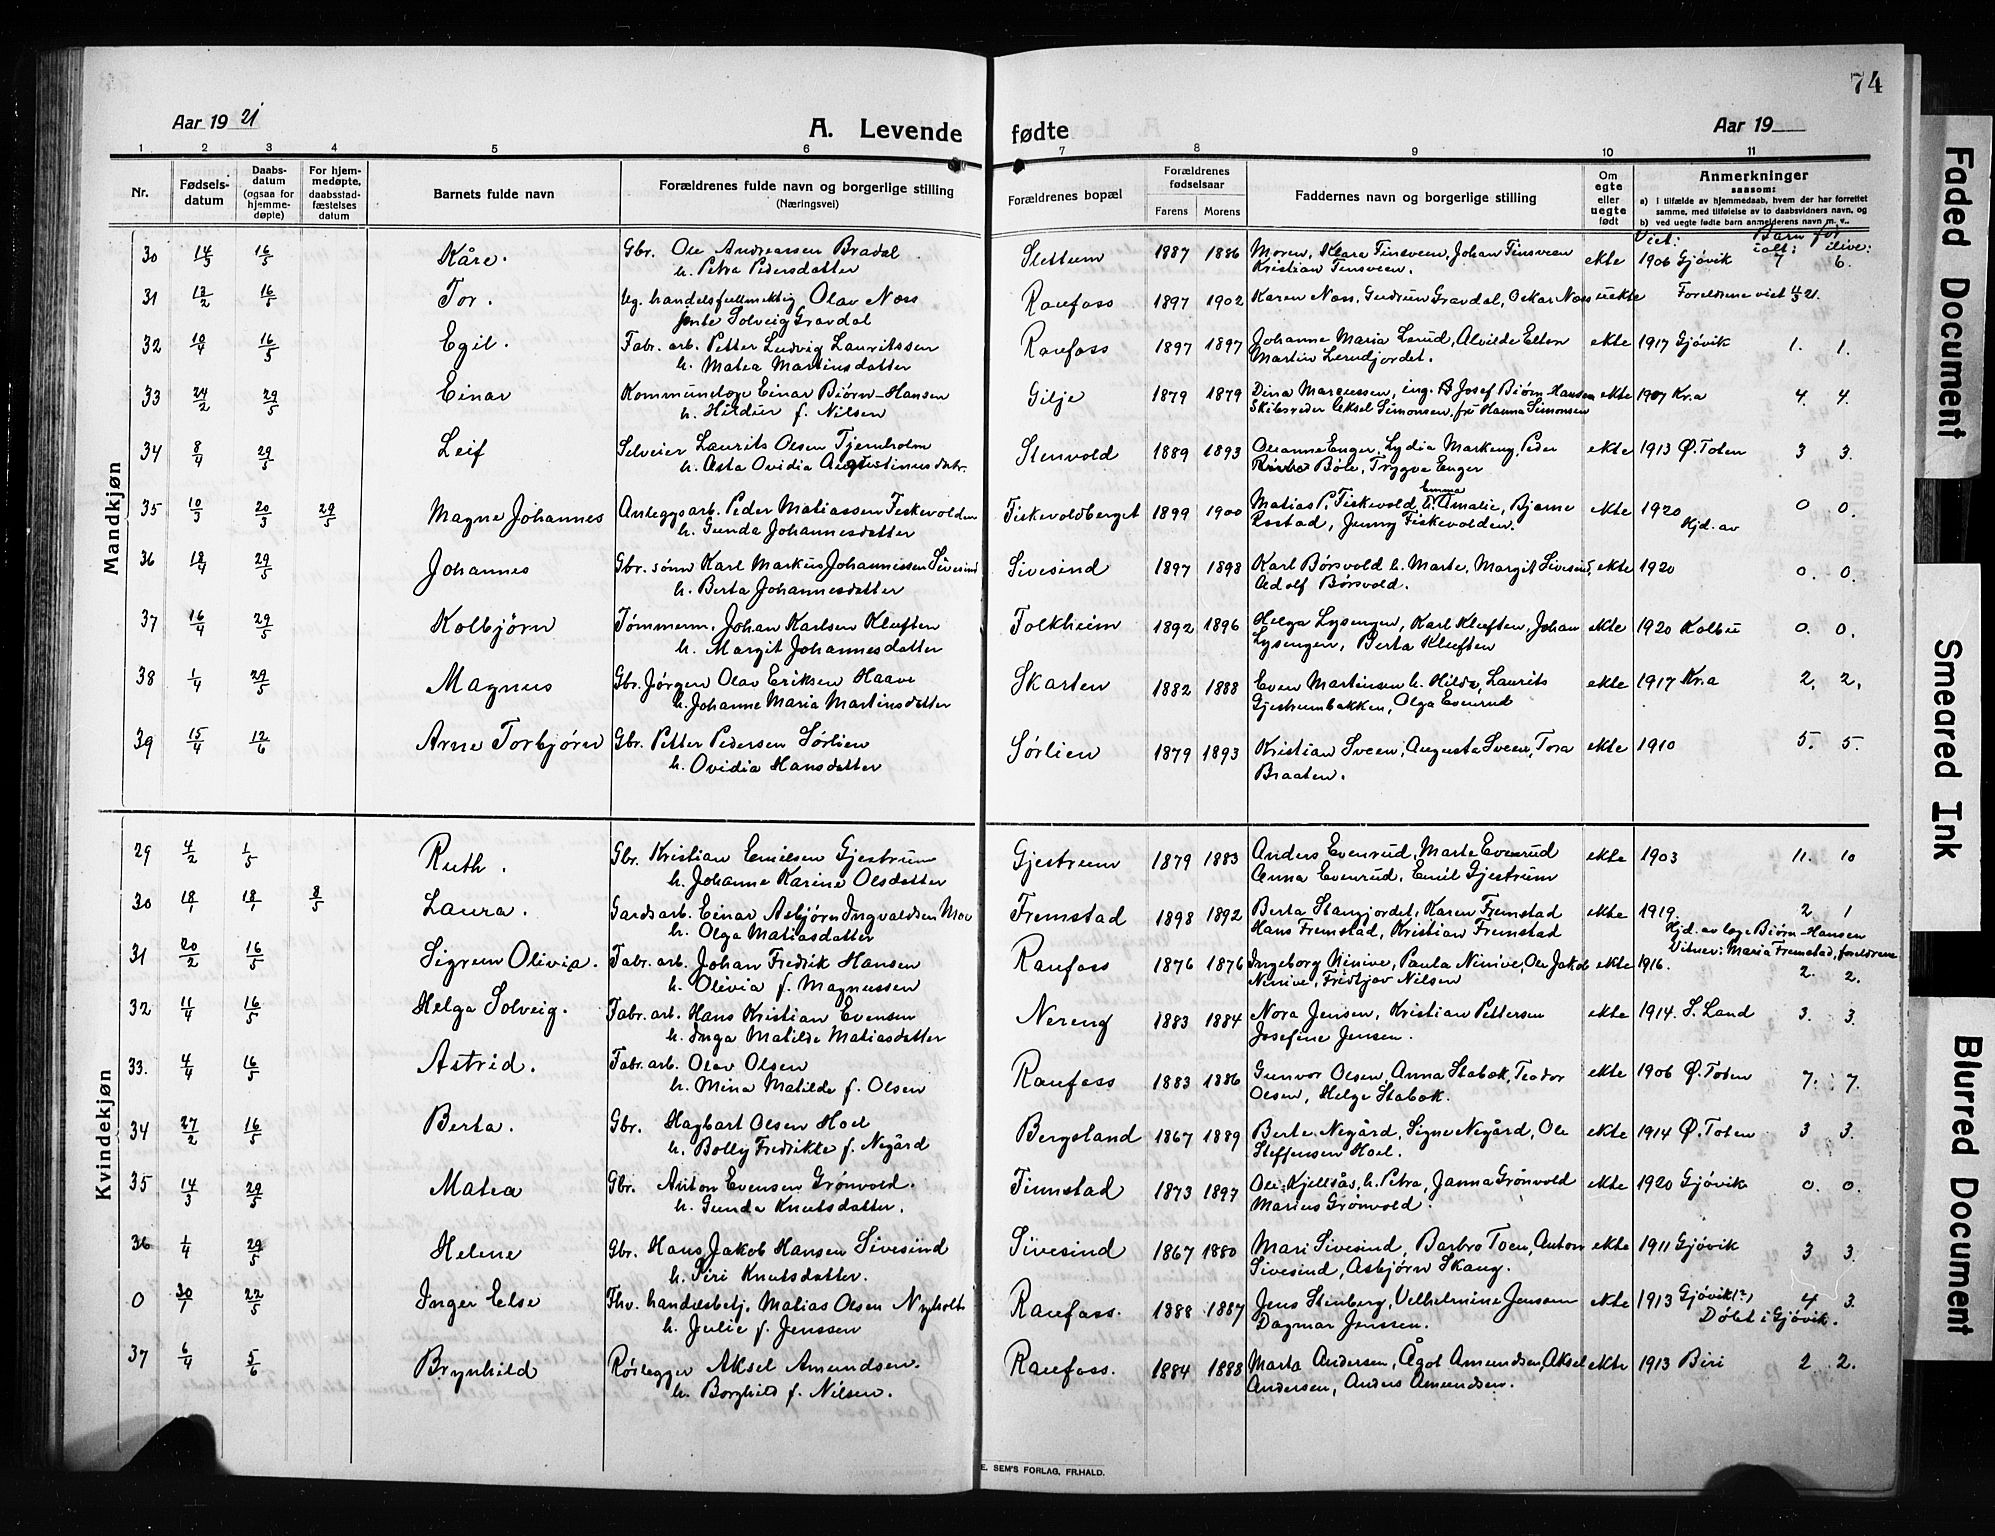 74
Aar 19 21
A. Levende fødte
Aar 19
1 2 3 4 5 6 7 8 9 10 11
Nr.
Fødselsdatum
Daabsdatum (ogsaa for hjemmedøpte)
For hjemmedøpte, daabsstadfæstelses datum
Barnets fulde navn
Forældrenes fulde navn og borgerlige stilling (Næringsvei)
Forældrenes bopæl
Forældrenes fødselsaar
Farens Morens
Faddernes navn og borgerlige stilling
Om egte eller uegte født
Anmerkninger
saasom:
a) I tilfælde av hjemmedaab, hvem der har forrettet samme, med tilføielse av to daabsvidners navn, og
b) ved uegte fødte barn anmelderens navn m. v.
Viet: Barn før ialt: ilive:
Mandkjøn
30 14/3 16/5 Kåre. Gbr. Ole Andreassen Bradal Slettum 1887 1886 Moren, Klara Finsveen, Johan Finsveen ekte 1906 Gjøvik 7 6.
h. Petra Pedersdatter Kristian Finsveen.
31 13/2 16/5 Tor. Ug. handelsfullmektig Olav Næss Raufoss 1897 1902 Karen Næss, Gudrun Gravdal, Oskar Næss uekte Foreldrene viet 4/5 21.
jente Solveig Gravdal
32 10/4 16/5 Egil. Fabr. arb. Petter Ludvig Lauritssen Raufoss 1897 1897 Johanne Maria Lerud, Alvilde Elton ekte 1917 Gjøvik 1. 1.
h. Matea Martinsdatter Martin Lerudjordet.
33 24/2 29/5 Einar Kommunelæge Einar Biørn-Hansen Gilje 1879 1879 Dina Marguessen, ing. Josef Biørn-Hansen ekte 1907 Kr.a 4. 4.
h. Hildur f. Nilsen Skibsreder Aksel Simonsen, fru Hanna Simonsen
34 8/4 29/5 Leif Selveier Laurits Olsen Tjernholm Stenvold 1889 1893 Oleanne Enger, Lydia Markeng, Peder ekte 1913 Ø. Toten 3 3.
h. Asta Ovidia Augustinusdatr. Böle, Trygve Enger
35 10/3 20/3 29/5 Magne Johannes Anleggsarb. Peder Matiassen Fiskevolden Fiskevoldberget 1899 1900 Matias P. Fiskevold h. Emma Amalie, Bjarne ekte 1920 0 0.
h. Gunda Johannesdatter Rostad, Jenny Fiskevolden. Hjd. av
36 18/4 29/5 Johannes Gbr. sønn Karl Markus Johannessen Sivesind Sivesind 1897 1898 Karl Børsvold h. Marte, Margit Sivesind, ekte 1920 0. 0.
h. Berta Johannesdatter Adolf Børsvold.
37 16/4 29/5 Kolbjörn Tømmerm. Johan Karlsen Kluften Folkheim 1892 1896 Helga Lysengen, Karl Kluften, Johan ekte 1920 Kolbu 0. 0.
h. Margit Johannesdatter Lysengen, Berta Kluften
38 1/4 29/5 Magnus Gbr. Jørgen Olav Eriksen Haave Skarten 1882 1888 Even Martinsen h. Hilda, Laurits ekte 1917 Kr.a 2. 2.
h. Johanne Maria Martinsdatter Gjestrumbakken, Olga Evenrud
39 15/4 12/6 Arne Torbjørn Gbr. Petter Pedersen Sørlien Sørlien 1879 1893 Kristian Sveen, Augusta Sveen, Tora ekte 1910 5. 5.
h. Ovidia Hansdatter Braaten.
Kvindekjøn
29 4/2 1/5 Ruth. Gbr. Kristian Emilsen Gjestrum Gjestrum 1879 1883 Anders Evenrud, Marte Evenrud ekte 1903 11. 10
h. Johanne Karine Olsdatter Anna Evenrud, Emil Gjestrum
30 18/1 18/1 8/5 Laura. Gardsarb. Einar Asbjørn Ingvaldsen Moe Fremstad 1898 1892 Berta Stangjordet, Karen Fremstad ekte 1919. 2 1
h. Olga Matiasdatter Hans Fremstad, Kristian Fremstad Hjd. av læge Biørn-Hansen
Vitner: Maria Fremstad, foreldrene
31 20/2 16/5 Sigrun Olivia. Fabr. arb. Johan Fredrik Hansen Raufoss 1876 1876 Ingeborg Ninive, Paula Ninive, Ole Jakob ekte 1916. 2. 2.
h. Olivia f. Magnussen Ninive, Fridtjov Nilsen
32 11/4 16/5 Helga Solveig. Fabr. arb. Hans Kristian Evensen Nereng 1883 1884 Nora Jensen, Kristian Pettersen ekte 1914. S. Land 3. 3.
h. Inga Matilde Matiasdatter Josefine Jensen.
33. 4/4 16/5 Astrid. Fabr. arb. Olav Olsen Raufoss 1883 1886 Gunvor Olsen, Anna Stabok, Teodor ekte 1906 Ø. Toten 7. 7.
h. Mina Matilde f. Olsen Olsen, Helge Stabok.
34 27/2 16/5 Berta. Gbr. Hagbart Olsen Hoel Bergsland 1867 1889 Berte Negård, Signe Negård, Ole ekte 1914 Ø. Toten 3 3.
h. Bolly Fredrikke f. Negård Steffensen Hoel.
35 14/3 29/5 Matea Gbr. Anton Evensen Grønvold. Finnstad 1873 1897 Ole Kjellsås, h. Petra, Janna Grønvold ekte 1920 Gjøvik 0. 0.
h. Gunda Knutsdatter. Marius Grønvold.
36 1/4 29/5 Helene Gbr. Hans Jakob Hansen Sivesind Sivesind 1867 1880 Mari Sivesind, Barbro Toen, Anton ekte 1911 Gjøvik 3 3.
h. Siri Knutsdatter. Sivesind, Asbjørn Skaug.
0 30/1 22/5 Inger Else Fhv. handelsbetj. Matias Olsen Nyholt Raufoss. 1888 1887 Jens Stenberg, Vilhelmine Jenssen ekte 1913 Gjøvik(?) 4 3.
h. Julie f. Jenssen Dagmar Jenssen. Døbt i Gjøvik.
37 6/4 5/6 Brynhild Rørlegger Aksel Amundsen. Raufoss. 1884 1888 Marta Andersen, Ågot Amundsen, Aksel ekte 1913 Biri 2 2.
h. Borghild f. Nilsen. Andersen, Anders Amundsen.
E. SEM'S FORLAG, FR.HALD.
Faded Document
Smeared Ink
Blurred Document